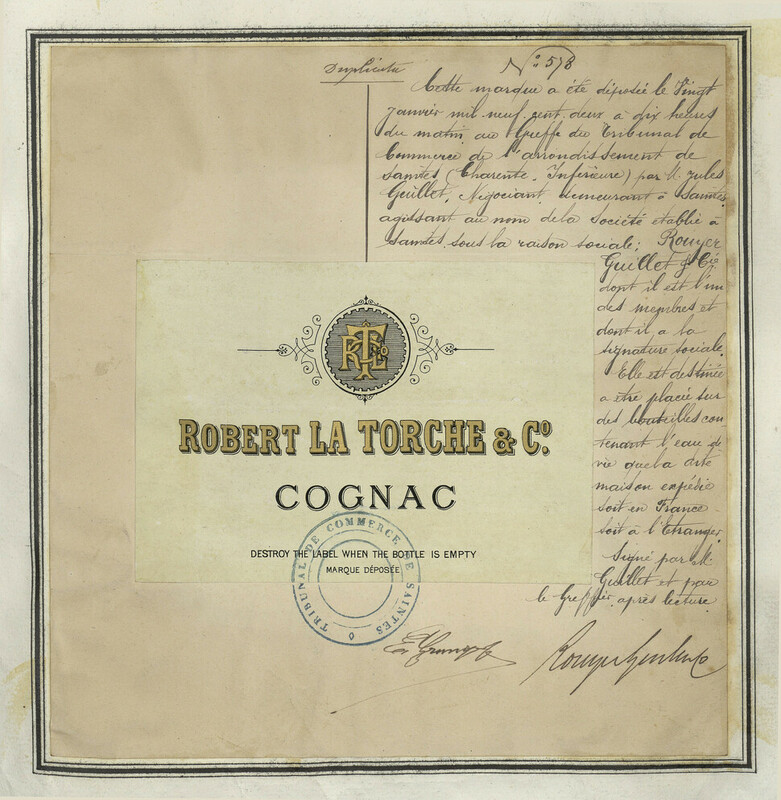 Duplicata
No: 578
Cette marque a été déposée le Vingt
janvier mil neuf cent deux à dix heures
du matin au Greffe du Tribunal de
Commerce de l'arrondissement de
Saintes (Charente-Inférieure) par M. Jules
Guillet, Négociant, demeurant à Saintes
agissant au nom de la Société établie à
Saintes sous la raison sociale; Rouyer
Guillet & Cie
dont il est l'un
des membres et
dont il a la
signature sociale.
Elle est destinée
a etre placée sur
des bouteilles con
tenant l'eau de
vie que la dite
maison expédie
soit en France
soit à l'Etranger.
Signé par M.
Guillet et par
le Greffier, après lecture
RTL&Co
ROBERT LA TORCHE & Co.
COGNAC
DESTROY THE LABEL WHEN THE BOTTLE IS EMPTY
MARQUE DÉPOSÉE
TRIBUNAL DE COMMERCE DE SAINTES
Rouyer Guillet & Co